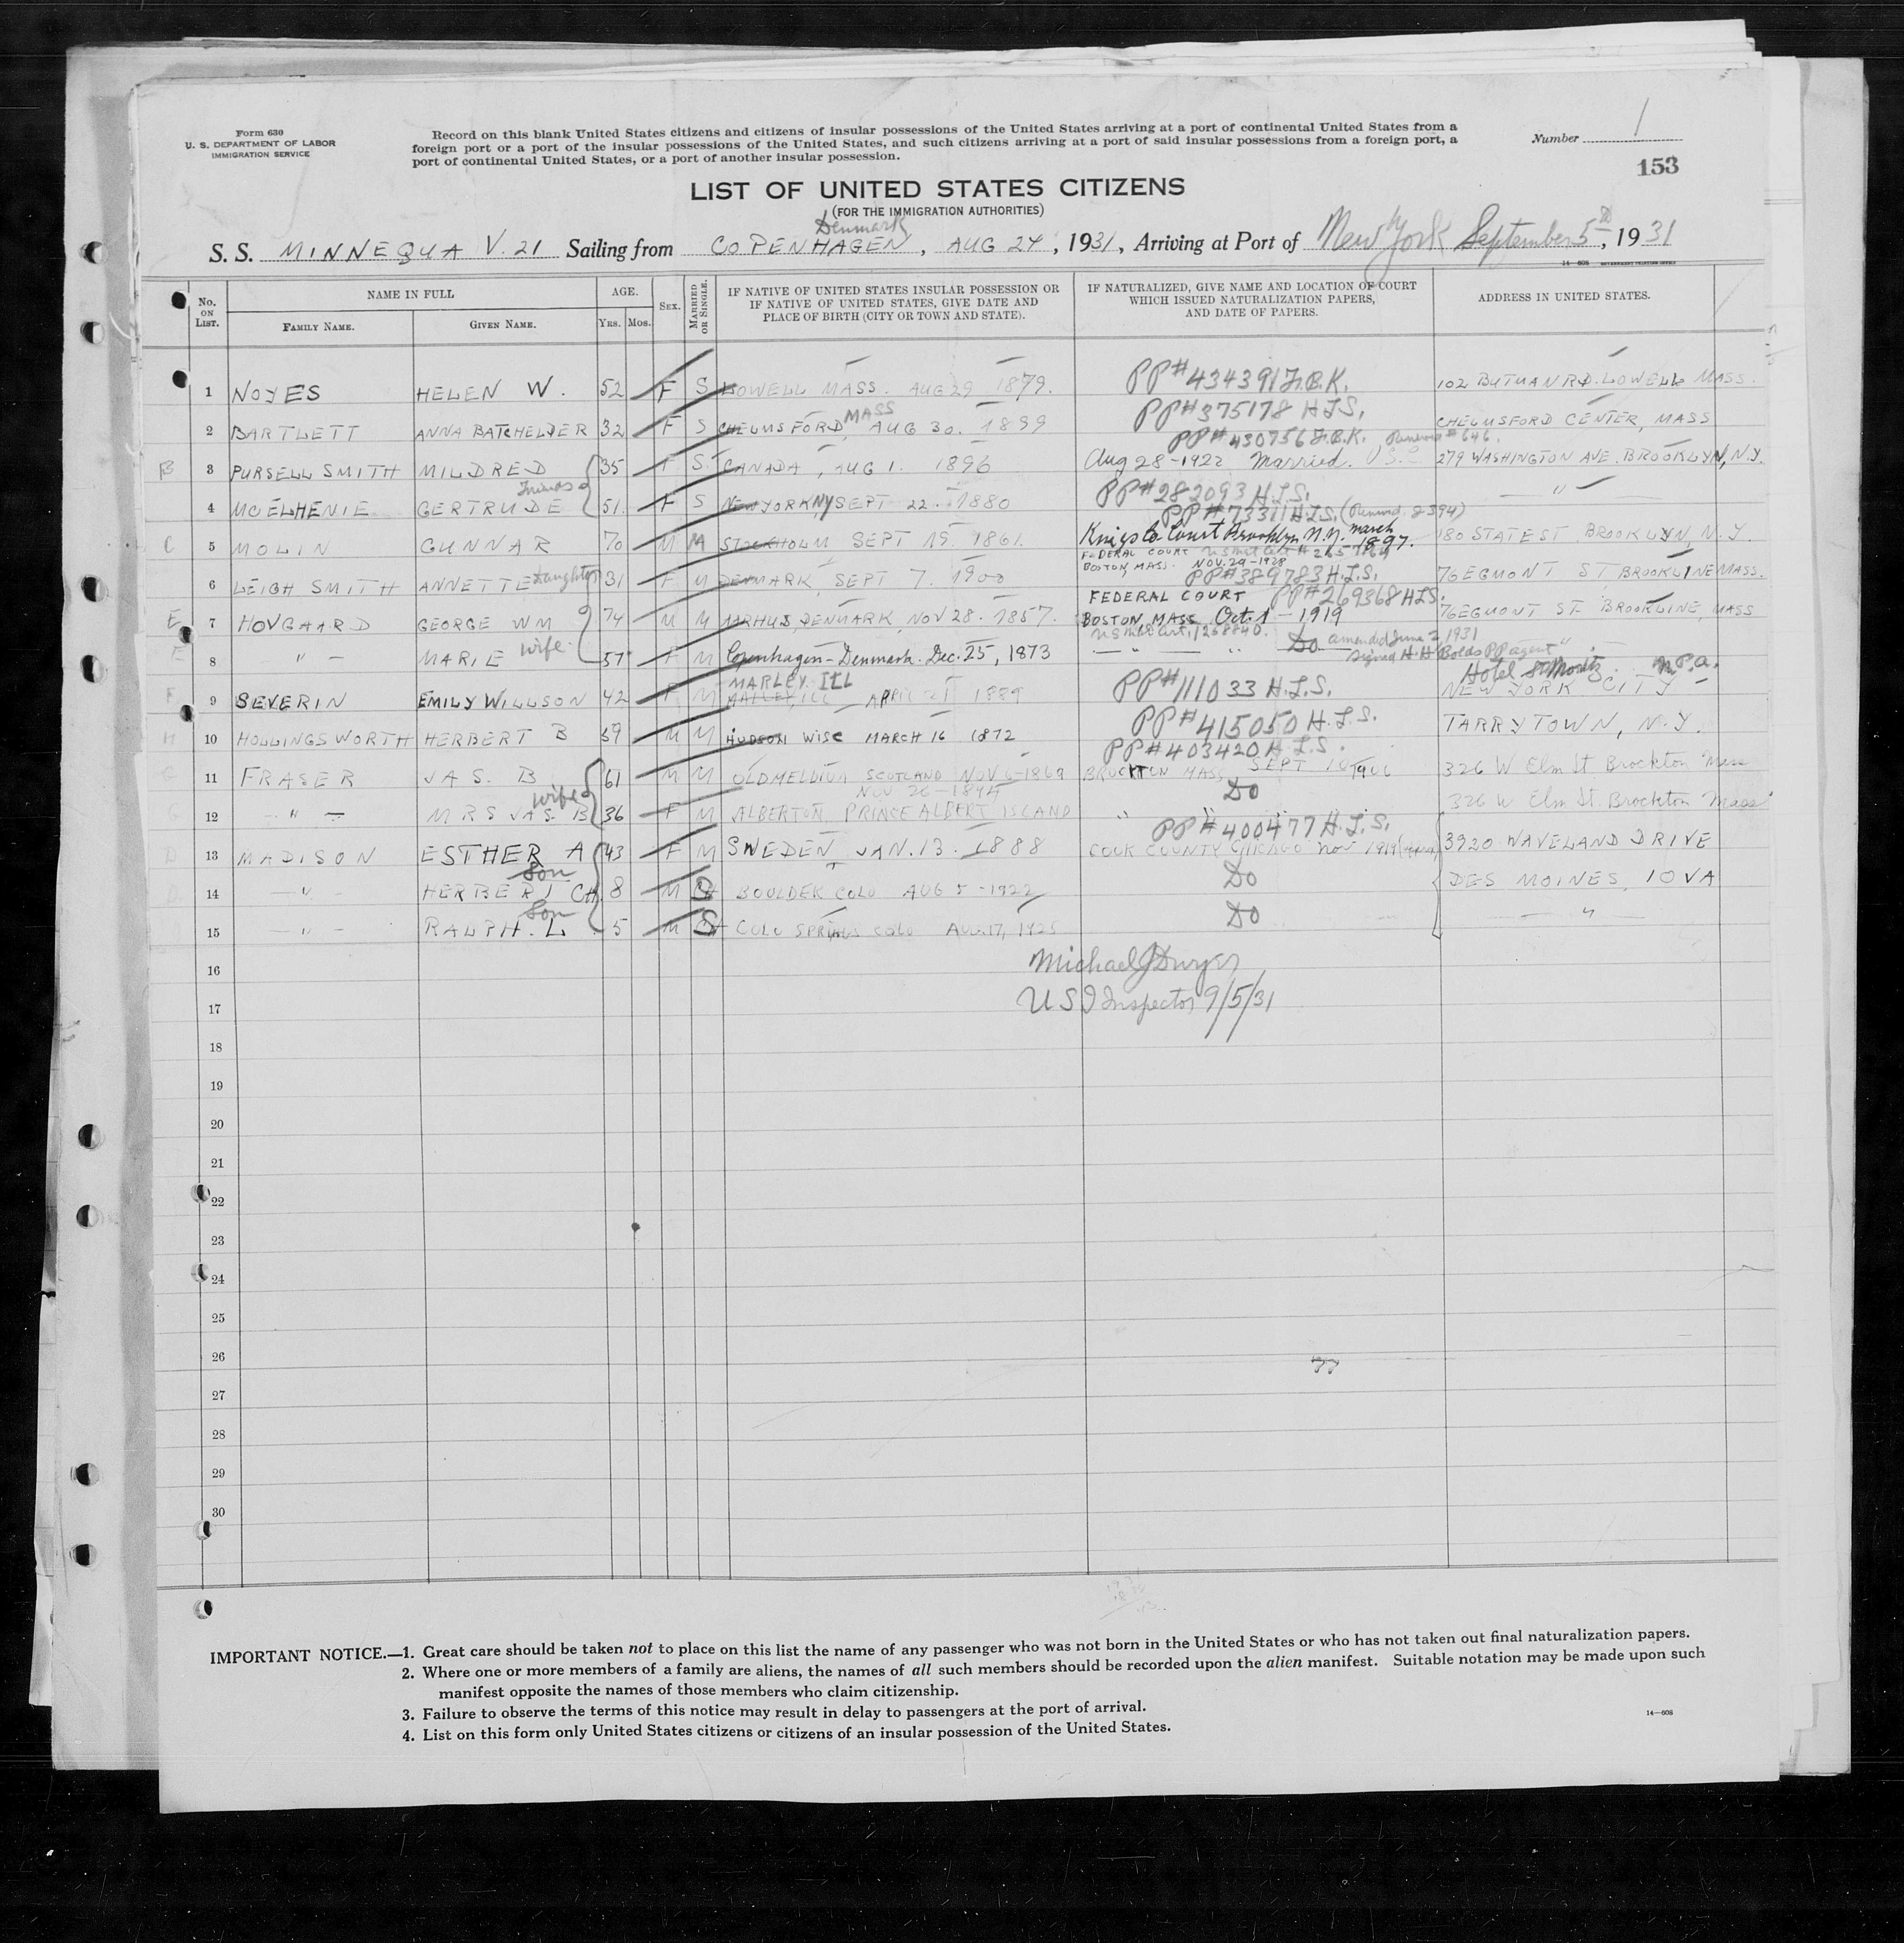 Form 630
U. S. DEPARTMENT OF LABOR
IMMIGRATION SERVICE
Record on this blank United States citizens and citizens of insular possessions of the United States arriving at a port of continental United States from a
foreign port or a port of the insular possessions of the United States, and such citizens arriving at a port of said insular possessions from a foreign port, a
port of continental United States, or a port of another insular possession.
Number 1
153
LIST OF UNITED STATES CITIZENS
(FOR THE IMMIGRATION AUTHORITIES)
Denmark
S. S. MINNEQUA V. 21 Sailing from COPENHAGEN, AUG 24, 1931, Arriving at Port of New York September 5th, 1931
14—608 GOVERNMENT PRINTING OFFICE
No. ON LIST.
NAME IN FULL
FAMILY NAME.
GIVEN NAME.
AGE.
YRS.
MOS.
SEX.
MARRIED OR SINGLE.
IF NATIVE OF UNITED STATES INSULAR POSSESSION OR
IF NATIVE OF UNITED STATES, GIVE DATE AND
PLACE OF BIRTH (CITY OR TOWN AND STATE).
IF NATURALIZED, GIVE NAME AND LOCATION OF COURT
WHICH ISSUED NATURALIZATION PAPERS,
AND DATE OF PAPERS.
ADDRESS IN UNITED STATES.
1 NOYES HELEN W. 52 F S LOWELL MASS. AUG 29 1879. PP# 434391 J.B.K. 102 BUTMAN RD. LOWELL MASS.
MASS PP# 375178 H.J.S.
2 BARTLETT ANNA BATCHELDER 32 F S CHELMSFORD, AUG 30. 1899 CHELMSFORD CENTER, MASS
PP# 430756 J.B.K. #646.
B 3 PURSELL SMITH MILDRED 35 F S. CANADA, AUG 1. 1896 Aug 28-1922 Married. U.S.C 279 WASHINGTON AVE. BROOKLYN, N.Y.
Friends PP# 282093 H.J.S.
4 MCELHENIE GERTRUDE 51. F S NEW YORK, NY SEPT 22. 1880 — " —
PP# 73311 H.J.S.
C 5 MOLIN GUNNAR 70 M M STOCKHOLM SEPT 19. 1861. Kings Co Court Brooklyn N.Y. march 1897. 180 STATE ST BROOKLYN, N.Y.
FEDERAL COURT
BOSTON, MASS. NOV. 29-1928
6 LEIGH SMITH ANNETTE daughter 31 F M DENMARK, SEPT 7. 1900 PP# 389783 H.J.S. 76 EGMONT ST BROOKLINE MASS.
FEDERAL COURT PP# 269368 H.J.S.
E 7 HOVGAARD GEORGE WM 74 M M AARHUS, DENMARK, NOV 28. 1857. BOSTON, MASS Oct. 1-1919 76 EGMONT ST. BROOKLINE, MASS
Do amended June 2, 1931
E 8 — " — MARIE wife 57 F M Copenhagen - Denmark. Dec. 25, 1873 — " — " — "
MARLEY ILL Hotel St Moritz.
F 9 SEVERIN EMILY WILLSON 42 F M APRIL 21 1889 PP# 111033 H.J.S. NEW YORK CITY
H 10 HOLLINGSWORTH HERBERT B 59 M M HUDSON WISC MARCH 16 1872 PP# 415050 H.J.S. TARRYTOWN, N.Y.
PP# 403420 H.J.S.
G 11 FRASER JAS. B 61 M M OLDMELDRUM SCOTLAND NOV 6-1869 BROCKTON MASS SEPT 1906 326 W Elm St Brockton Mass
wife NOV 26-1894 Do
G 12 — " — MRS JAS. B 36 F M ALBERTON, PRINCE ALBERT ISLAND " 326 W Elm St. Brockton Mass
PP# 400477 H.J.S.
D 13 MADISON ESTHER A 43 F M SWEDEN JAN. 13. 1888 COOK COUNTY CHICAGO Nov 1919 3920 WAVELAND DRIVE
Son Do
D 14 — " — HERBERT CH. 8 M S BOULDER COLO AUG 5 -1922 DES MOINES, IOVA
Son Do
15 — " — RALPH. L 5 M S COLO SPRINGS COLO AUG. 17, 1925 — " —
16 Michael J Dwyer
17 U S I Inspector 9/5/31
18
19
20
21
22
23
24
25
26
27
28
29
30
IMPORTANT NOTICE.—1. Great care should be taken not to place on this list the name of any passenger who was not born in the United States or who has not taken out final naturalization papers.
2. Where one or more members of a family are aliens, the names of all such members should be recorded upon the alien manifest. Suitable notation may be made upon such
manifest opposite the names of those members who claim citizenship.
3. Failure to observe the terms of this notice may result in delay to passengers at the port of arrival.
4. List on this form only United States citizens or citizens of an insular possession of the United States.
14—608